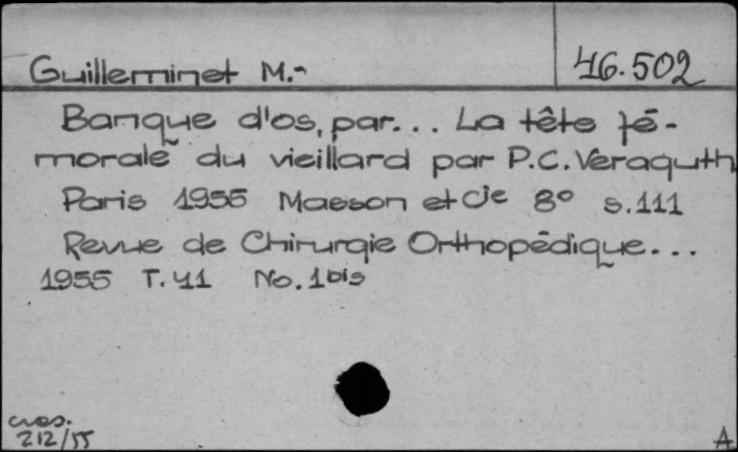 Guilleminet M.- 46.502
Banque d'os, par... La tête fé-
morale du vieillard par P.C. Veraguth
Paris 1955 Masson et Cie 8° s.111
Revue de Chirurgie Orthopédique...
1955 T.41 No.1bis
212/55 A